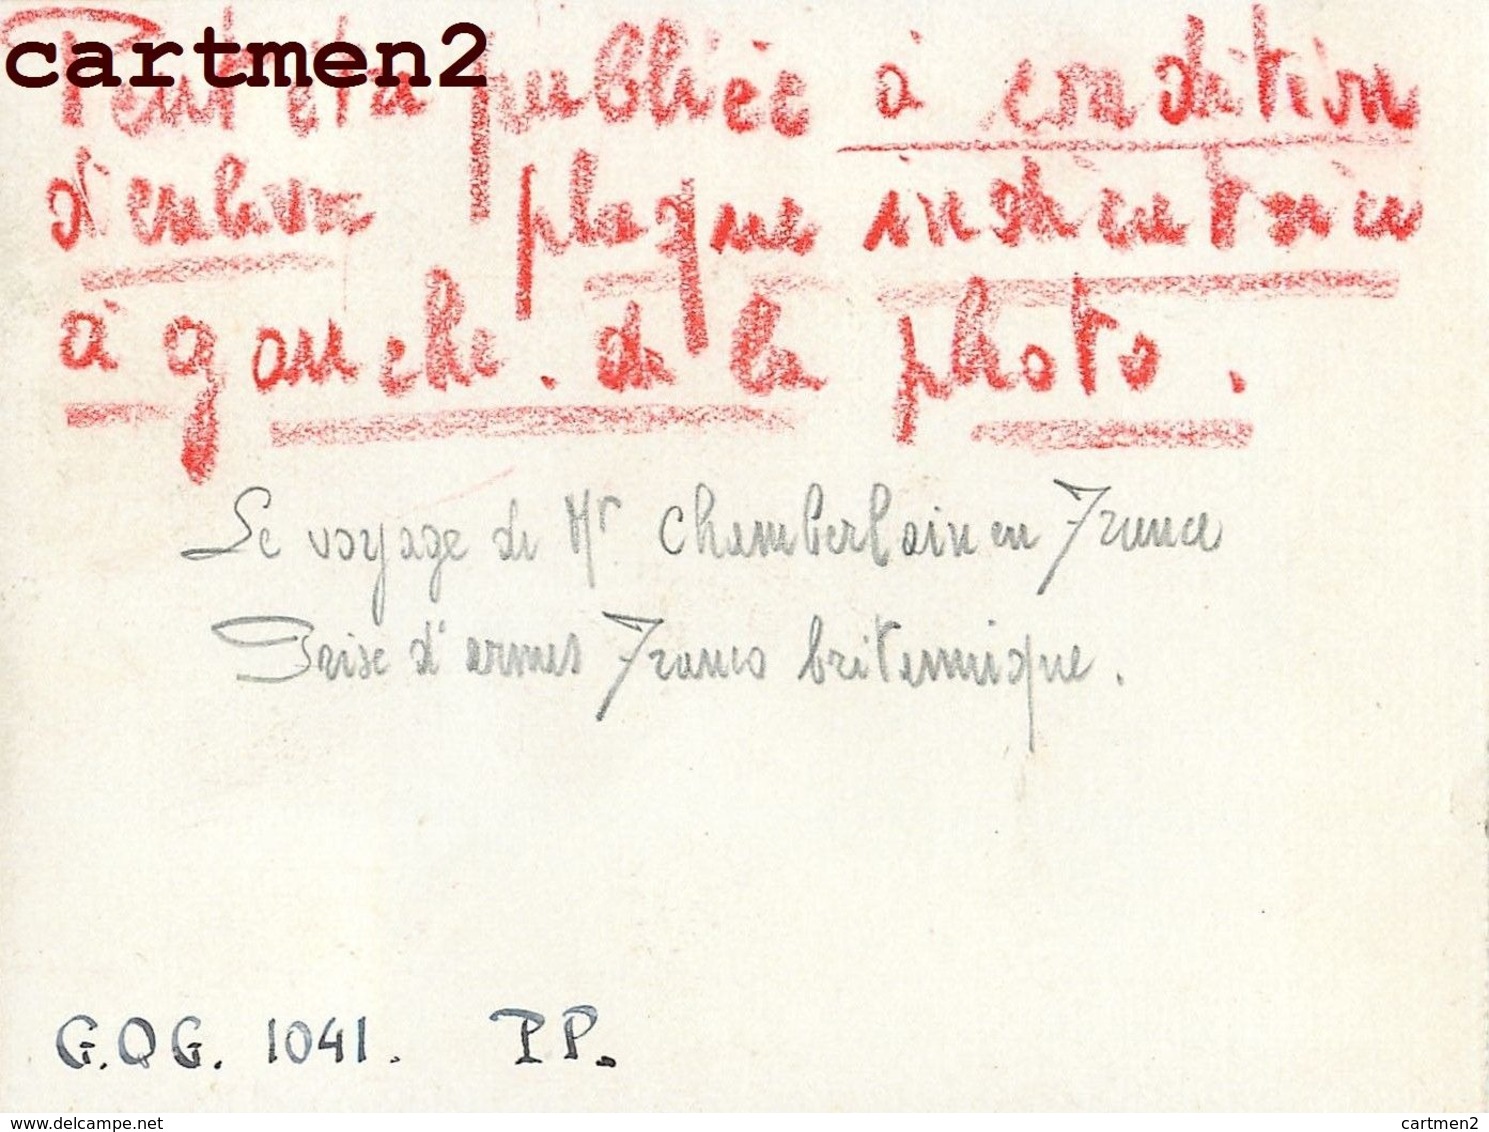 cartmen2
Peut être publiée à condition
d'enlever plaque indicatrice
à gauche. de la photo.
Le voyage de Mr Chamberlain en France
Prise d'armes Franco britannique.
G.Q.G. 1041. P.P.
www.delcampe.net
cartmen2